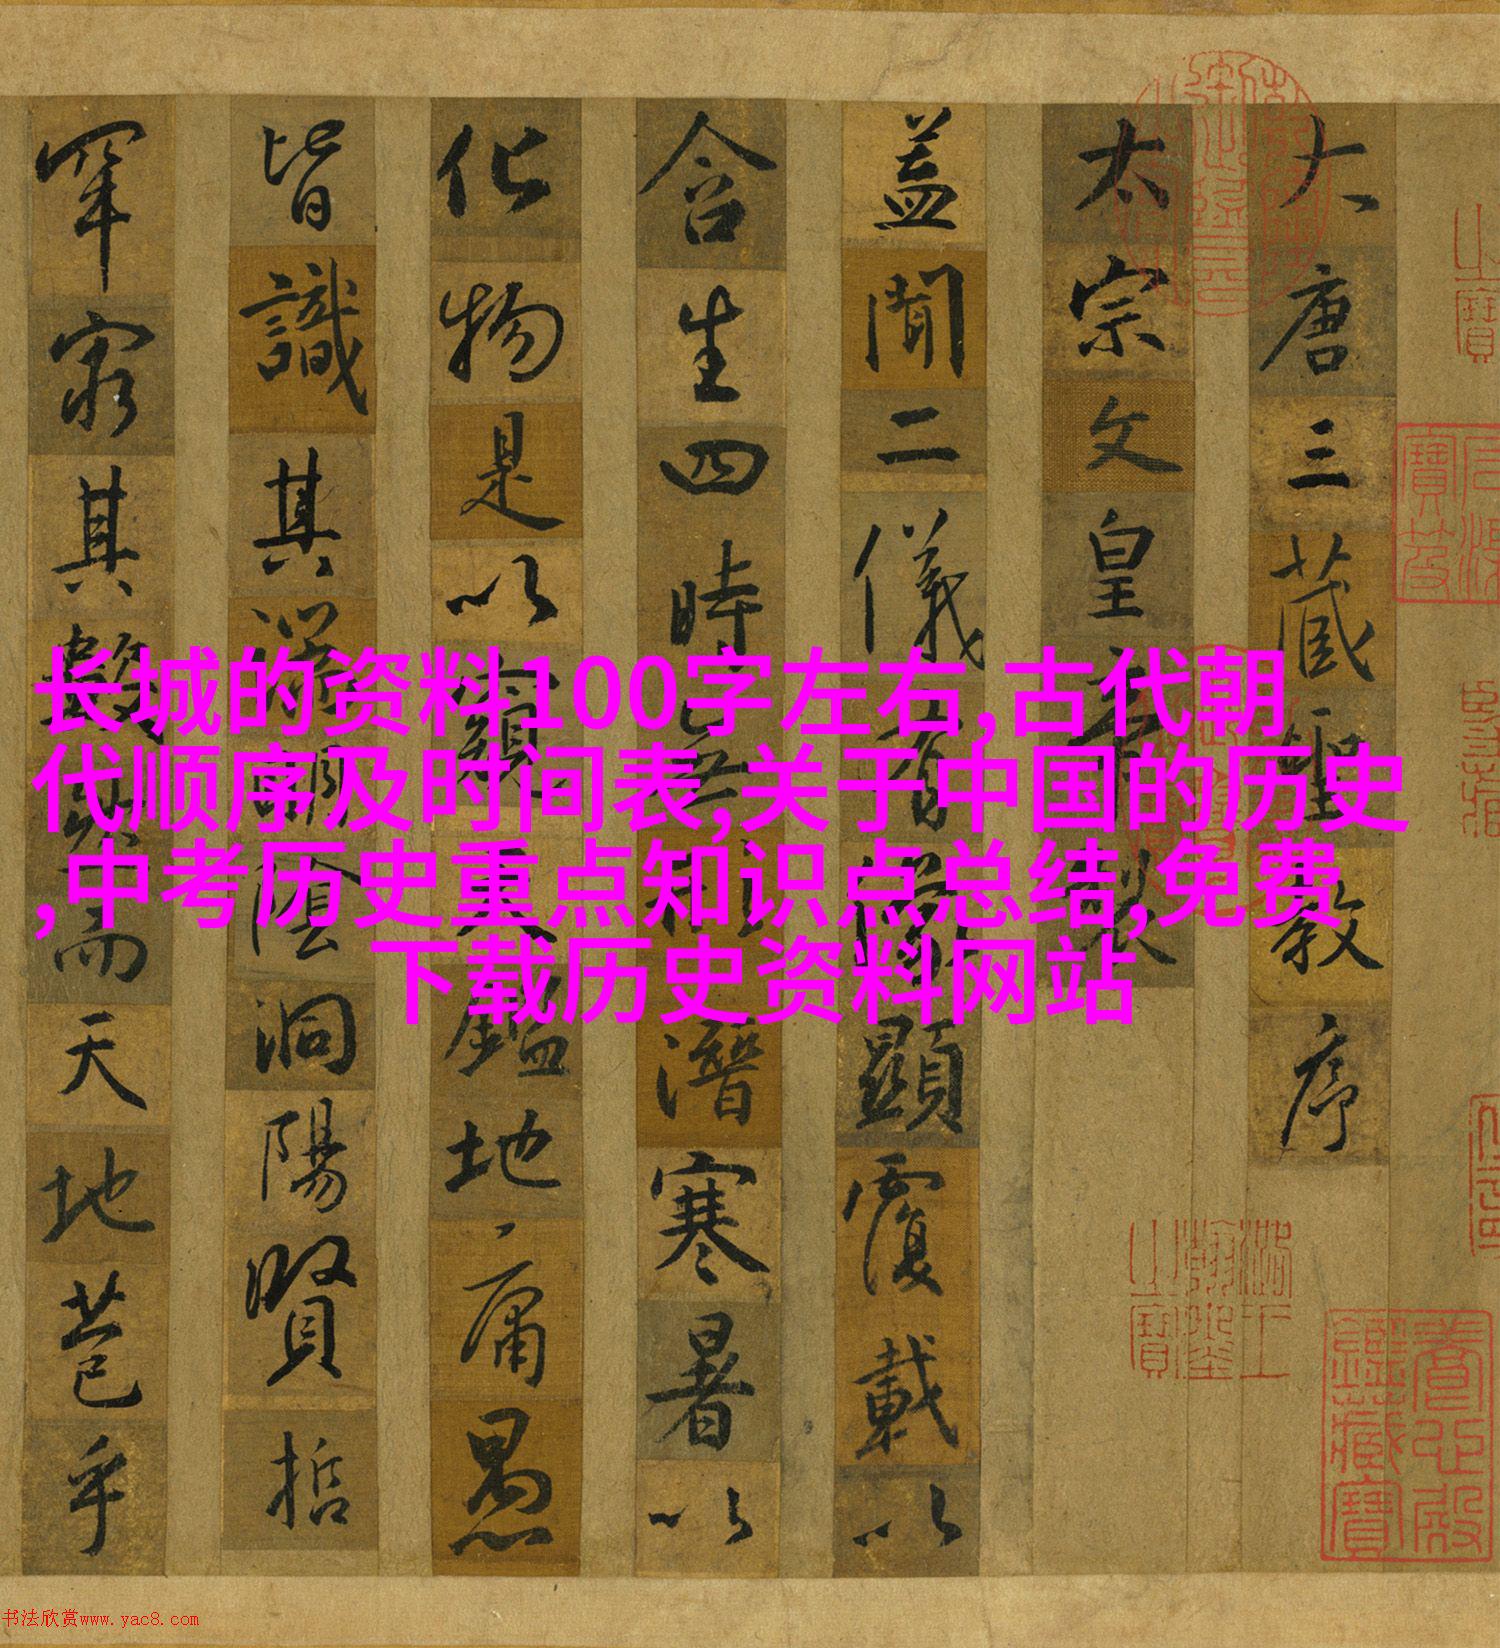 大唐三藏聖教序
太宗文皇帝製
蓋聞二儀有像顯覆載以
含生四時無形潛寒暑以
化物是以窺天鑑地庸愚
皆識其端明陰洞陽賢哲
罕窮其數然而天地苞乎
长城的资料100字左右,古代朝
代顺序及时间表,关于中国的历史
,中考历史重点知识点总结,免费
下载历史资料网站
養心殿鑑藏寶
书法欣赏www.yac8.com